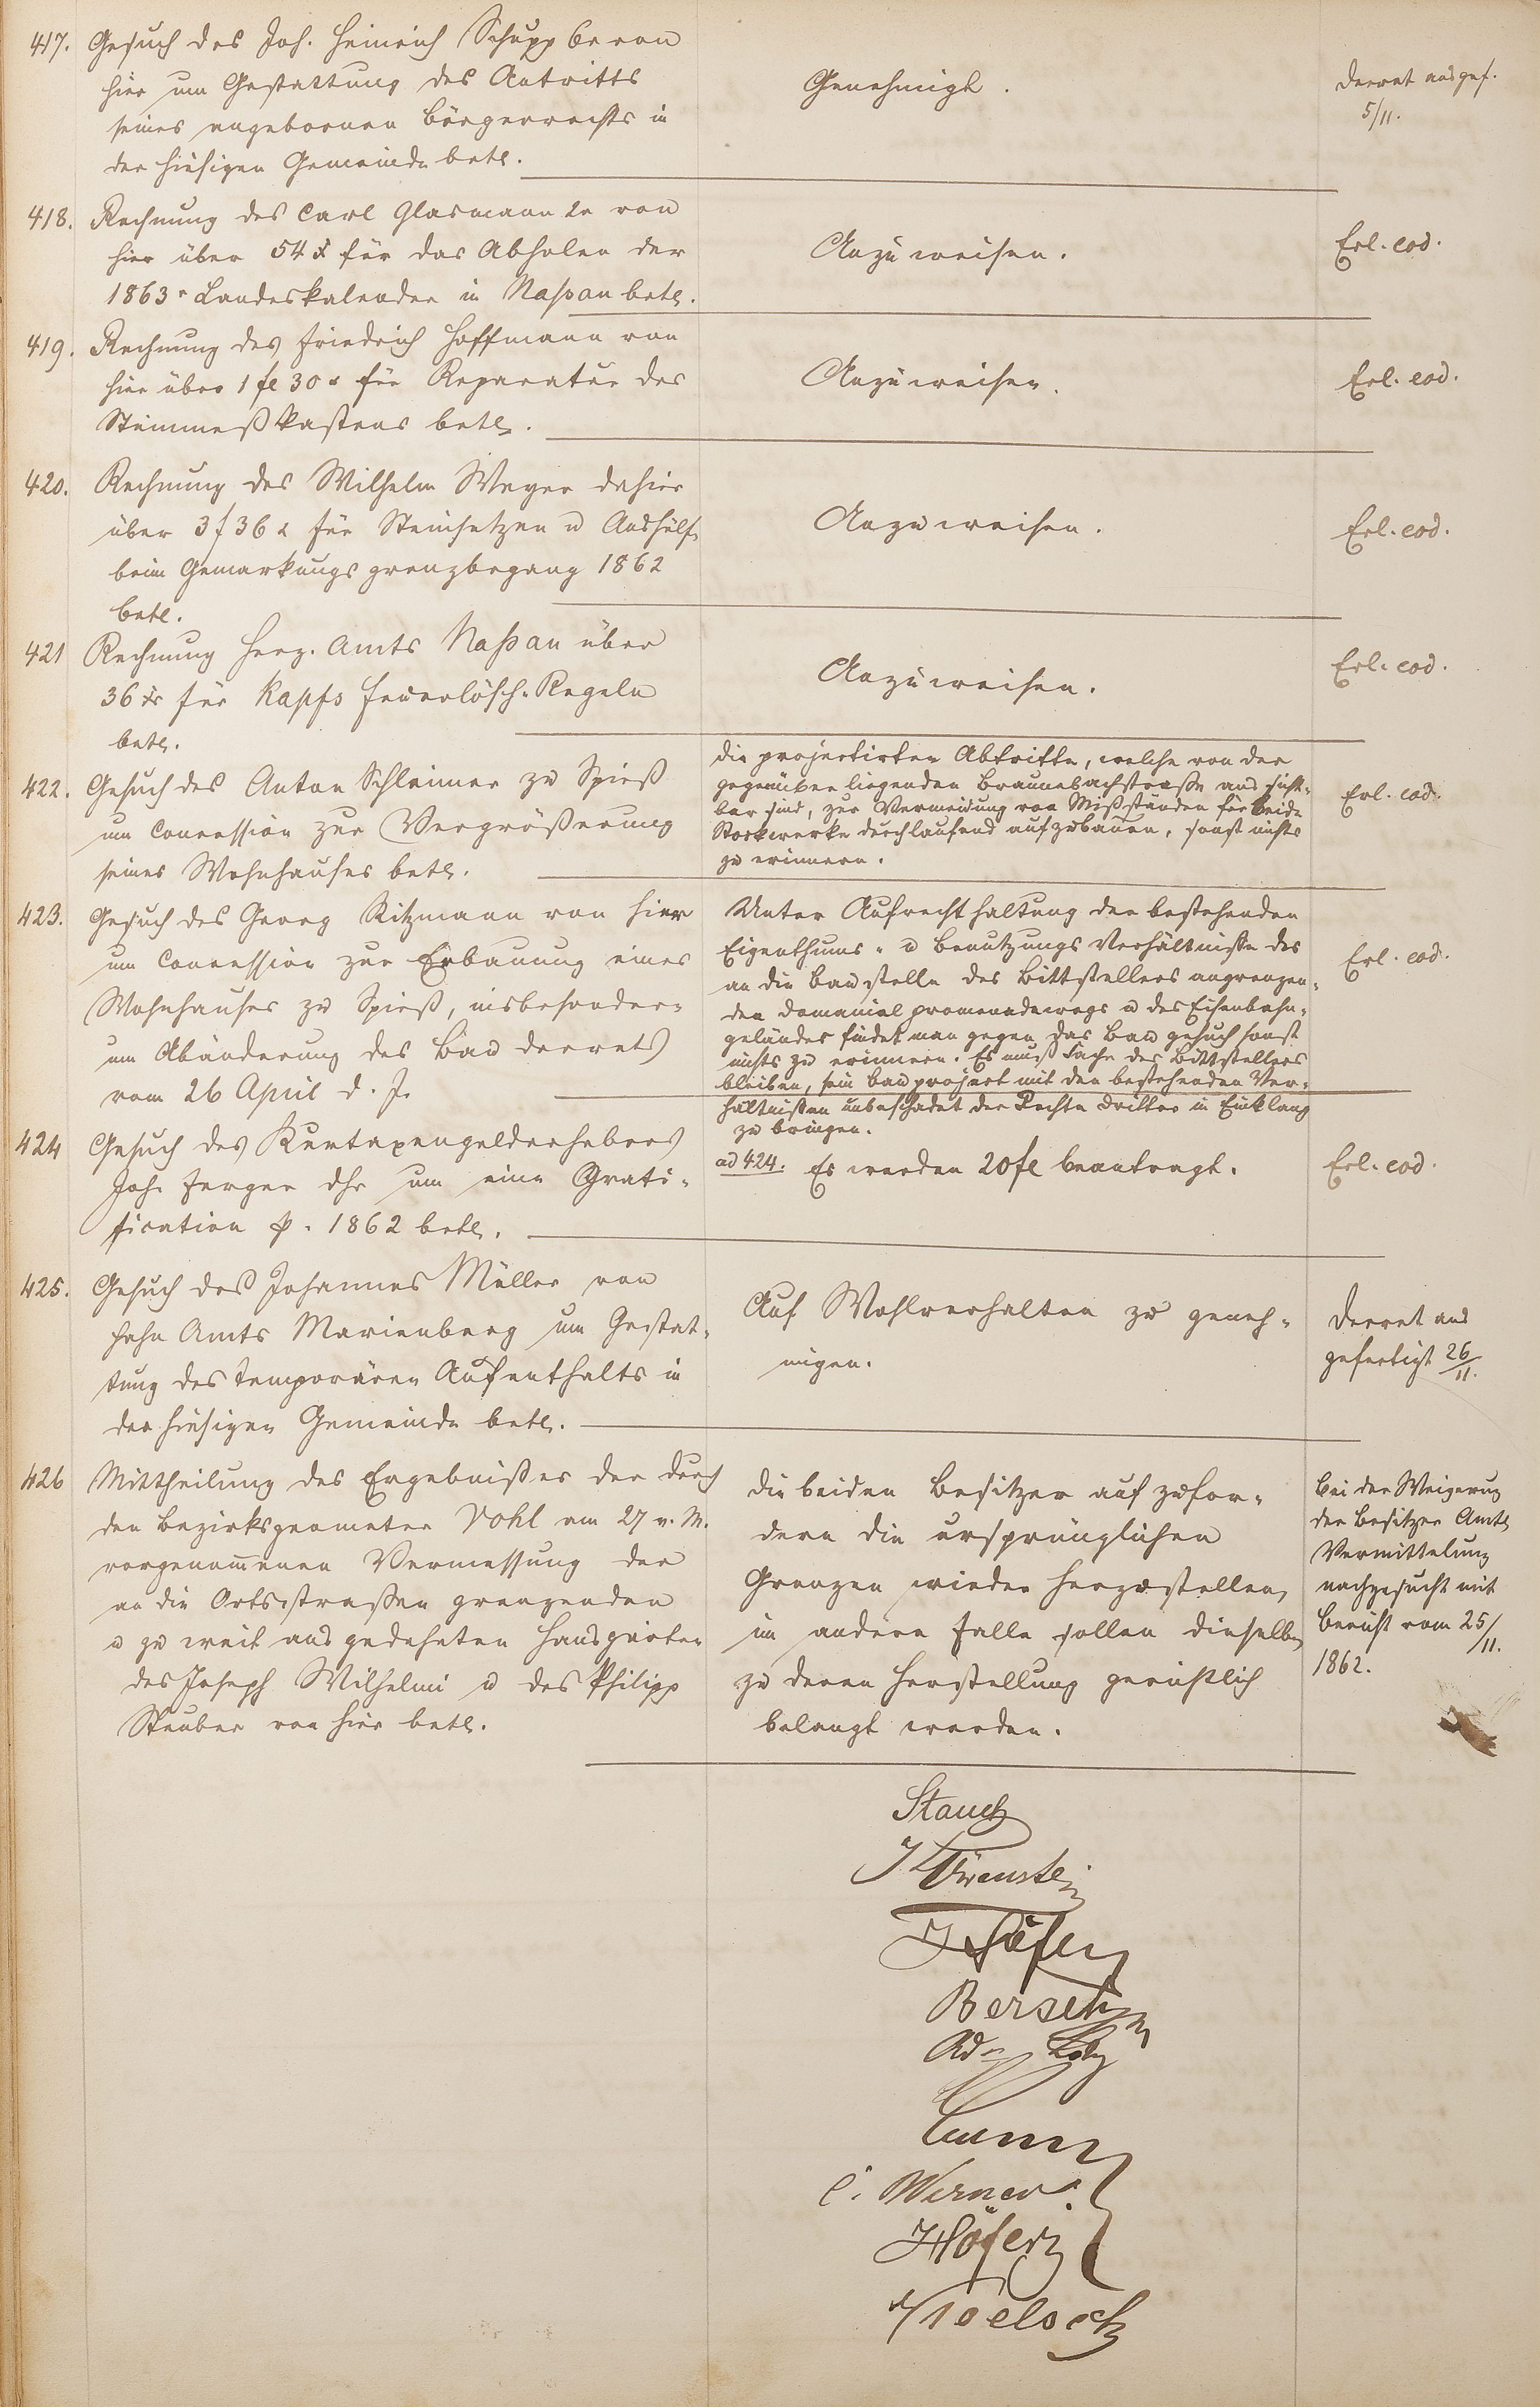 417. Gesuch des Joh. Heinrich Schupp 6r von
hier um Gestattung des Antritts
seines angebornen Bürgerrechts in
der hiesigen Gemeinde betr.
Genehmigt.
Decret ausgef.
5/11.
418. Rechnung des Carl Glasmann 2r von
hier über 54 x für das Abholen der
1863r Landeskalender in Naßau betr.
Anzuweisen.
Erl. eod.
419. Rechnung des Friedrich Hoffmann von
hier über 1 fl 30 x für Reparatur des
Steinmeßkastens betr.
Anzuweisen.
Erl. eod.
420. Rechnung des Wilhelm Weyer dahier
über 3 f 36 x für Steinsetzen u Aushülfe
beim Gemarkungsgrenzbegang 1862
betr.
Anzuweisen.
Erl. eod.
421 Rechnung Herz. Amts Naßau über
36 xr für Kapfs Feuerlösch-Regeln
betr.
Anzuweisen.
Erl. eod.
422. Gesuch des Anton Schleimer zu Spieß
um Concession zur Vergrößerung
seines Wohnhauses betr.
die projectirten Abtritte, welche von der
gegenüber liegenden Braunebachstraße aus sicht-
bar sind, zur Vermeidung von Mißständen für beide
Stockwerke durchlaufend aufzubauen, sonst nichts
zu erinnern.
Erl. eod.
423. Gesuch des Georg Kitzmann von hier
um Concession zur Erbauung eines
Wohnhauses zu Spieß, insbesonder-
um Abänderung des Bau decrets
vom 26 April d. J.
Unter Aufrechthaltung der bestehenden
Eigenthums- u Benutzungs Verhältniße des
an die Baustelle des Bittstellers angrenzen-
den Domanial promenadewegs u des Eisenbahn-
geländes findet man gegen das Bau gesuch sonst
nichts zu erinnern. Es muß Sache des Bittstellers
bleiben, sein Bauproject mit den bestehenden Ver-
hältnißen unbeschadet der Rechte Dritter in Einklang
zu bringen.
Erl. eod.
424 Gesuch des Kurtaxengelderhebers
Joh. Ferger dhr um eine Grati-
fication p. 1862 betr.
ad 424. Es werden 20 fl beantragt.
Erl. eod.
425. Gesuch des Johannes Müller von
Hahn Amts Marienberg um Gestat-
tung des temporären Aufenthalts in
der hiesigen Gemeinde betr.
Auf Wohlverhalten zu geneh-
migen.
Decret aus
gefertigt 26/11.
426 Mittheilung des Ergebnißes der durch
den Bezirksgeometer Vohl am 27 v. M.
vorgenom̅enen Vermessung der
an die Ortsstraßen grenzenden
u zu weit ausgedehnten Hausgärten
des Joseph Wilhelmi u des Philipp
Steuber von hier betr.
die beiden Besitzer aufzufor-
dern die ursprünglichen
Grenzen wieder herzustellen,
im andern Falle sollen dieselben
zu deren Herstellung gerichtlich
belangt werden.
Bei der Weigerung
der Besitzer Amtl.
Vermittelung
nachgesucht mit
Bericht vom 25/11.
1862.
Stauch
J Löwenstein
J Höfer
Berseh
Ad. Koly
C. Werner
J Höfer